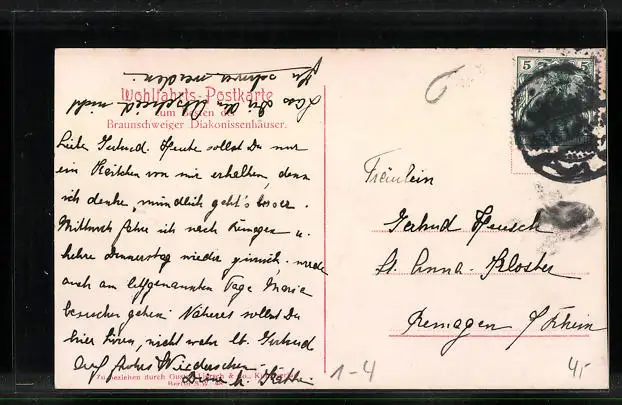 Wohlfahrts-Postkarte
zum Besten der
Braunschweiger Diakonissenhäuser.
Lass Dir den Abschied nicht
zu schwer werden.
Liebe Gertrud. Heute sollst Du nur
ein Kärtchen von mir erhalten, denn
ich denke, mündlich geht's besser.
Mittwoch fahre ich nach u.
kehre Donnerstag wieder zurück, werde
auch am letztgenannten Tage Maria
besuchen gehen. Näheres sollst Du
hier hören, nicht wahr lb. Gertrud
Auf frohes Wiedersehen
Deine Käthe
Zu beziehen durch
Berlin S.W.
5 5
Fräulein
Gertrud Heusch
St. Anna-Kloster
Remagen / Rhein
1-4
4,-